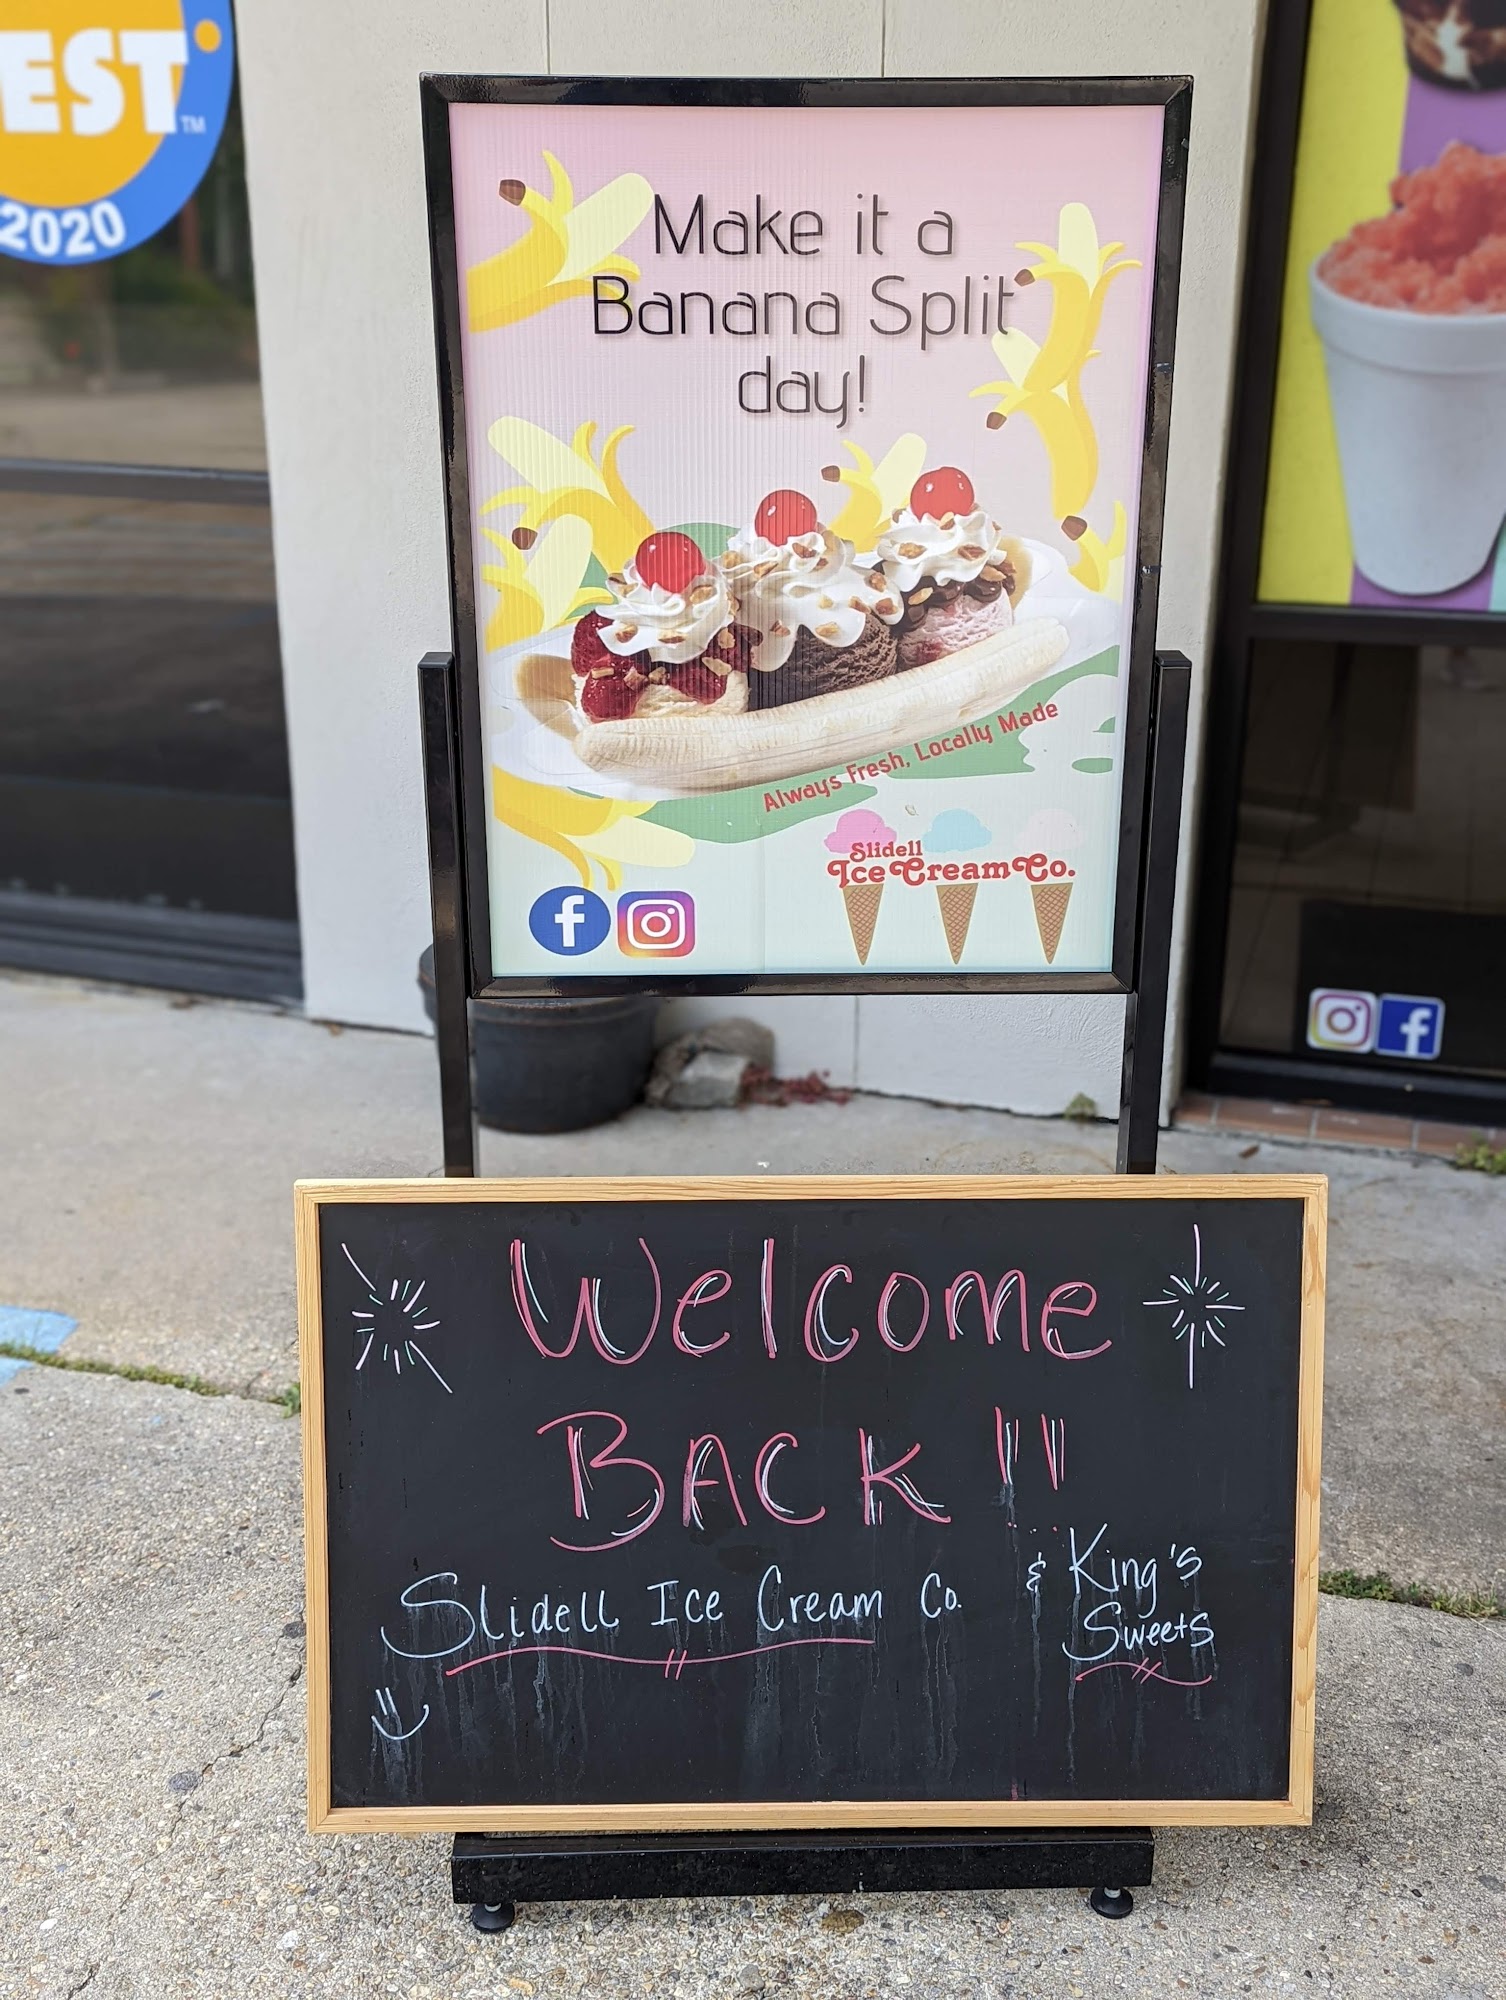 EST
TM
2020
Make it a
Banana Split
day!
Always Fresh, Locally Made
Slidell
Ice Cream Co.
Welcome
BACK!!
Slidell Ice Cream Co. & King's
Sweets